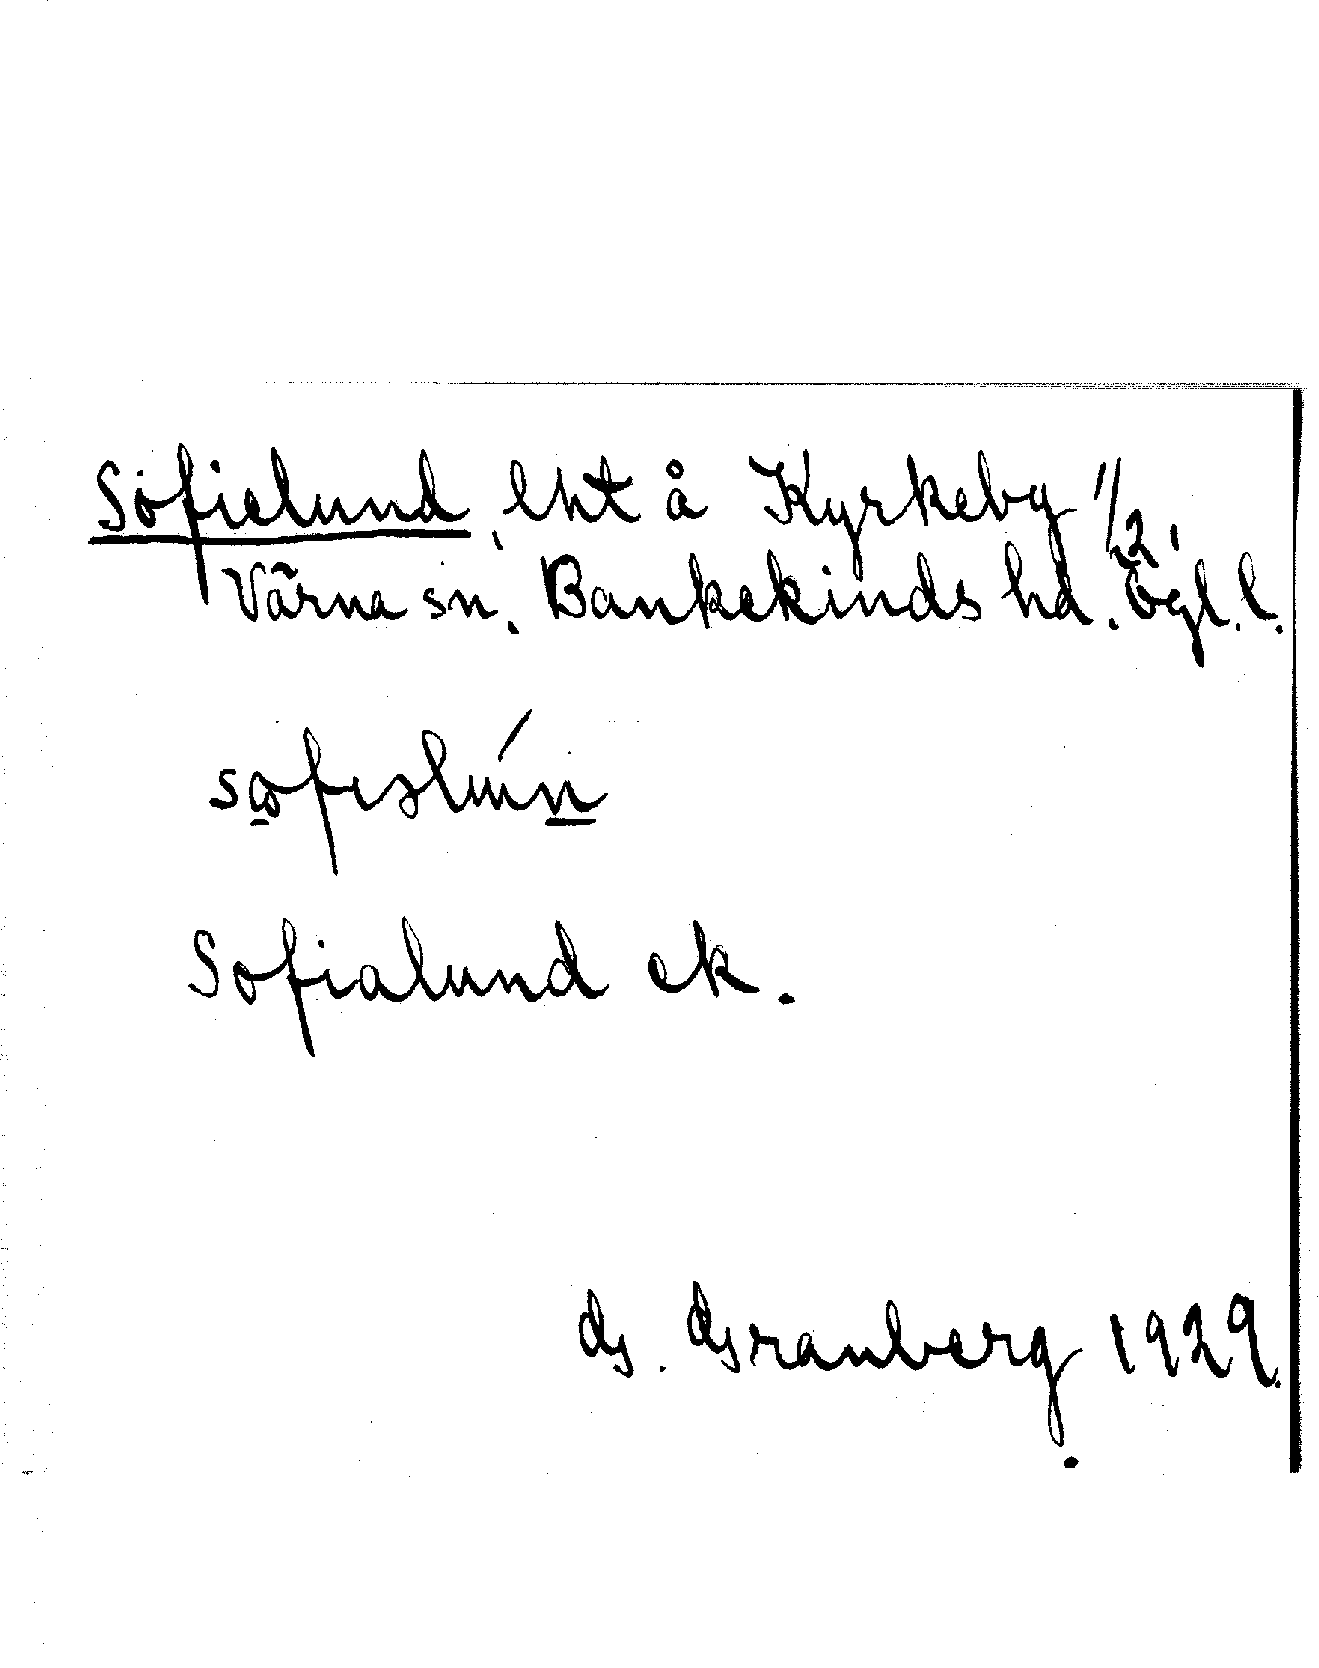 Sofielund, lht å Kyrkeby 1/2,
Värna sn, Bankekinds hd. Ögl. l.
Sofialund ek.
G. Granberg 1929.